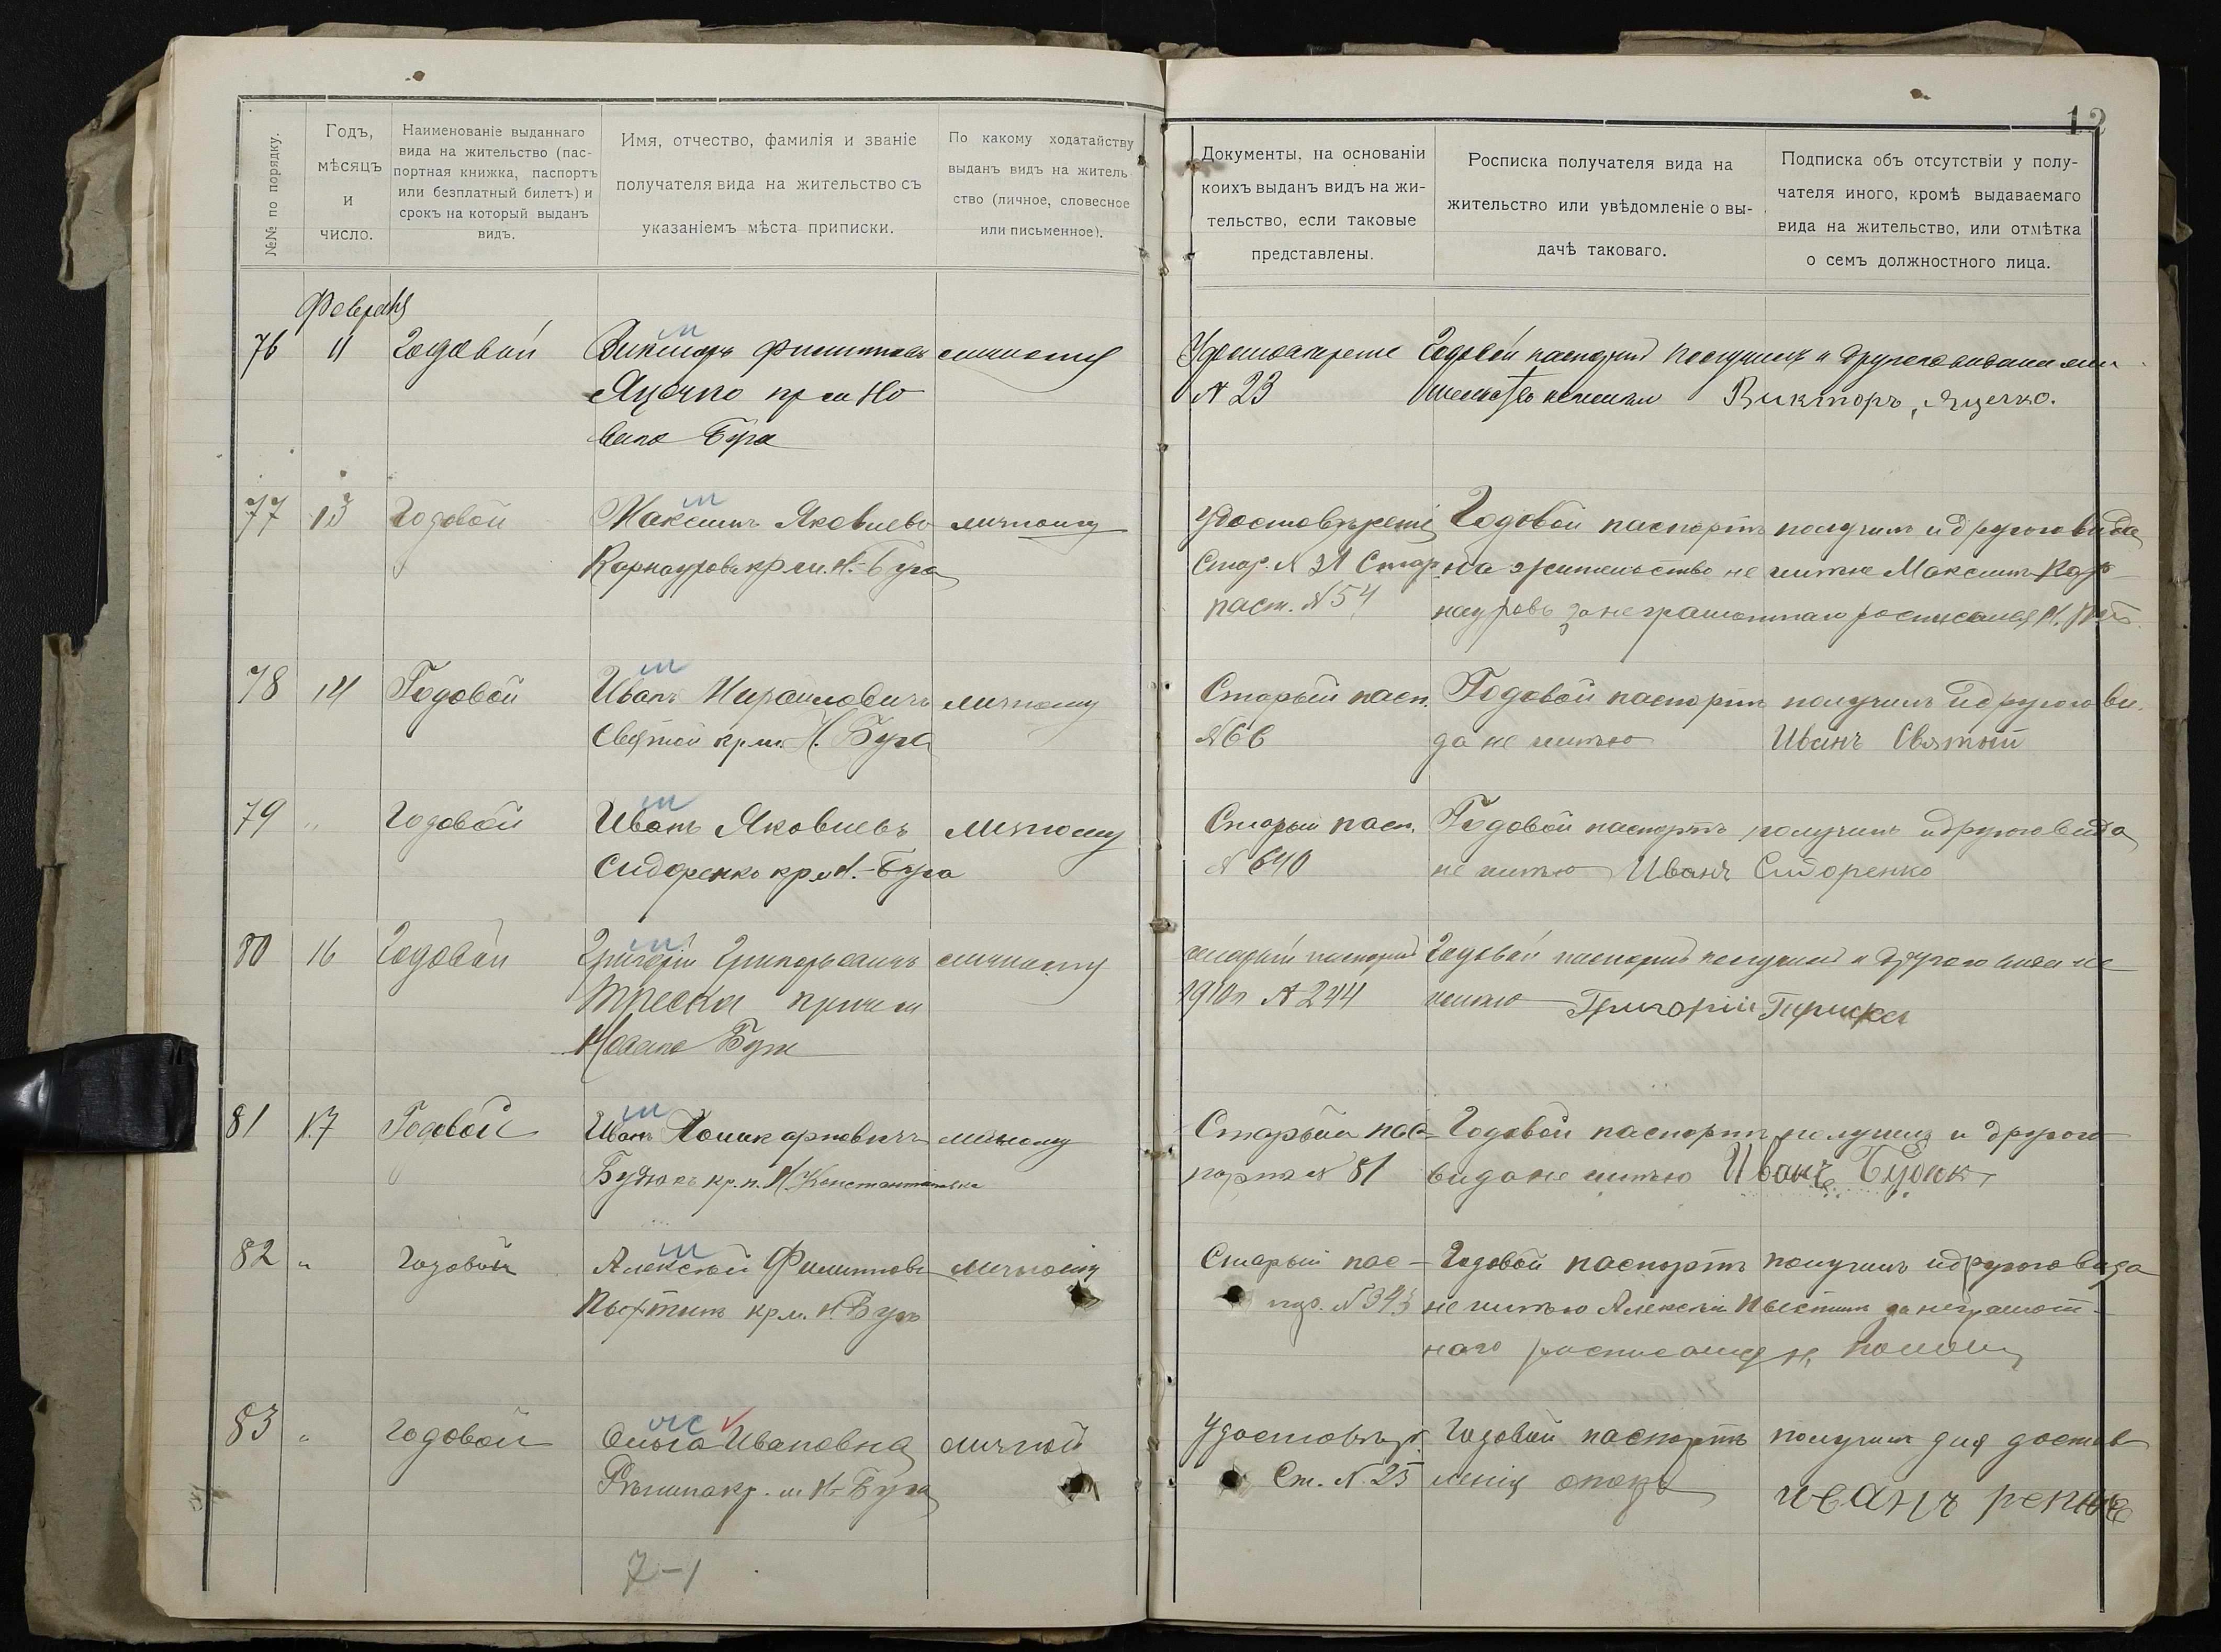 12
№№ по порядку.
Годъ, мѣсяцъ и число.
Наименованіе выданнаго
вида на жительство (пас-
портная книжка, паспортъ
или безплатный билетъ) и
срокъ на который выданъ
видъ.
Имя, отчество, фамилія и званіе
получателя вида на жительство съ
указаніемъ мѣста приписки.
По какому ходатайству
выданъ видъ на житель-
ство (личное, словесное
или письменное).
Документы, на основаніи
коихъ выданъ видъ на жи-
тельство, если таковые
представлены.
Росписка получателя вида на
жительство или увѣдомленіе о вы-
дачѣ таковаго.
Подписка объ отсутствіи у полу-
чателя иного, кромѣ выдаваемаго
вида на жительство, или отмѣтка
о семъ должностного лица.
Февраля
76 11 Годовой Викторъ Филиппов личному
Яценко кр м Но
ваго Буга
№ 23
Годовой паспортъ получилъ и другого вида на жи-
тельство не имѣю Викторъ Яценко.
77 13 Годовой Максимъ Яковлевъ личному
Карнауровъ кр м. Н.-Буга
Удостовѣреніе
Стар. № 31 Стар
пасп. № 54
Годовой паспортъ получилъ и другого вида
на жительство не имѣю Максимъ Кар-
науровъ за неграмотнаго росписался Н.
78 14 Годовой Иванъ Михайловичъ личному
Святой кр м. Н. Буга
Старый пасп.
№ 66
Годовой паспортъ получилъ и другого ви-
да не имѣю Иванъ Святый
79 " Годовой Иванъ Яковлевъ личному
Сидоренко кр м Н.-Буга
Старый пасп.
№ 640
Годовой паспортъ получилъ и другого вида
не имѣю Иванъ Сидоренко
80 16 Годовой Григорій Григорьевичъ личному
Новаго Буга
старый паспортъ
1910 г № 244
Годовой паспортъ получилъ и другого вида не
имѣю Григорій
81 17 Годовой Иванъ Поликарповичъ личному
Будюкъ кр. п. Н. Константиновка
Старый пас-
портъ № 81
Годовой паспортъ получилъ и другого
вида не имѣю Иванъ
82 " Годовой Алексѣй Филипповъ личному
кр м. Н. Буга
Старый пас-
№ 343
Годовой паспортъ получилъ и другого вида
не имѣю Алексѣй за неграмот-
наго росписался Н.
83 " Годовой Ольга Ивановна личной
кр. м Н-Буга
Удостовѣр.
Ст. № 25
Годовой паспортъ получилъ для достав-
ленія
иванъ
7-1